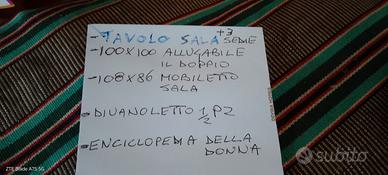 +3
- TAVOLO SALA SEDIE
- 100X100 ALLUGABILE
IL DOPPIO
- 108X86 MOBILETTO
SALA
- DIVANOLETTO 1/2 PZ
- ENCICLOPEDIA DELLA
DONNA
subito
ZTE Blade A75 5G